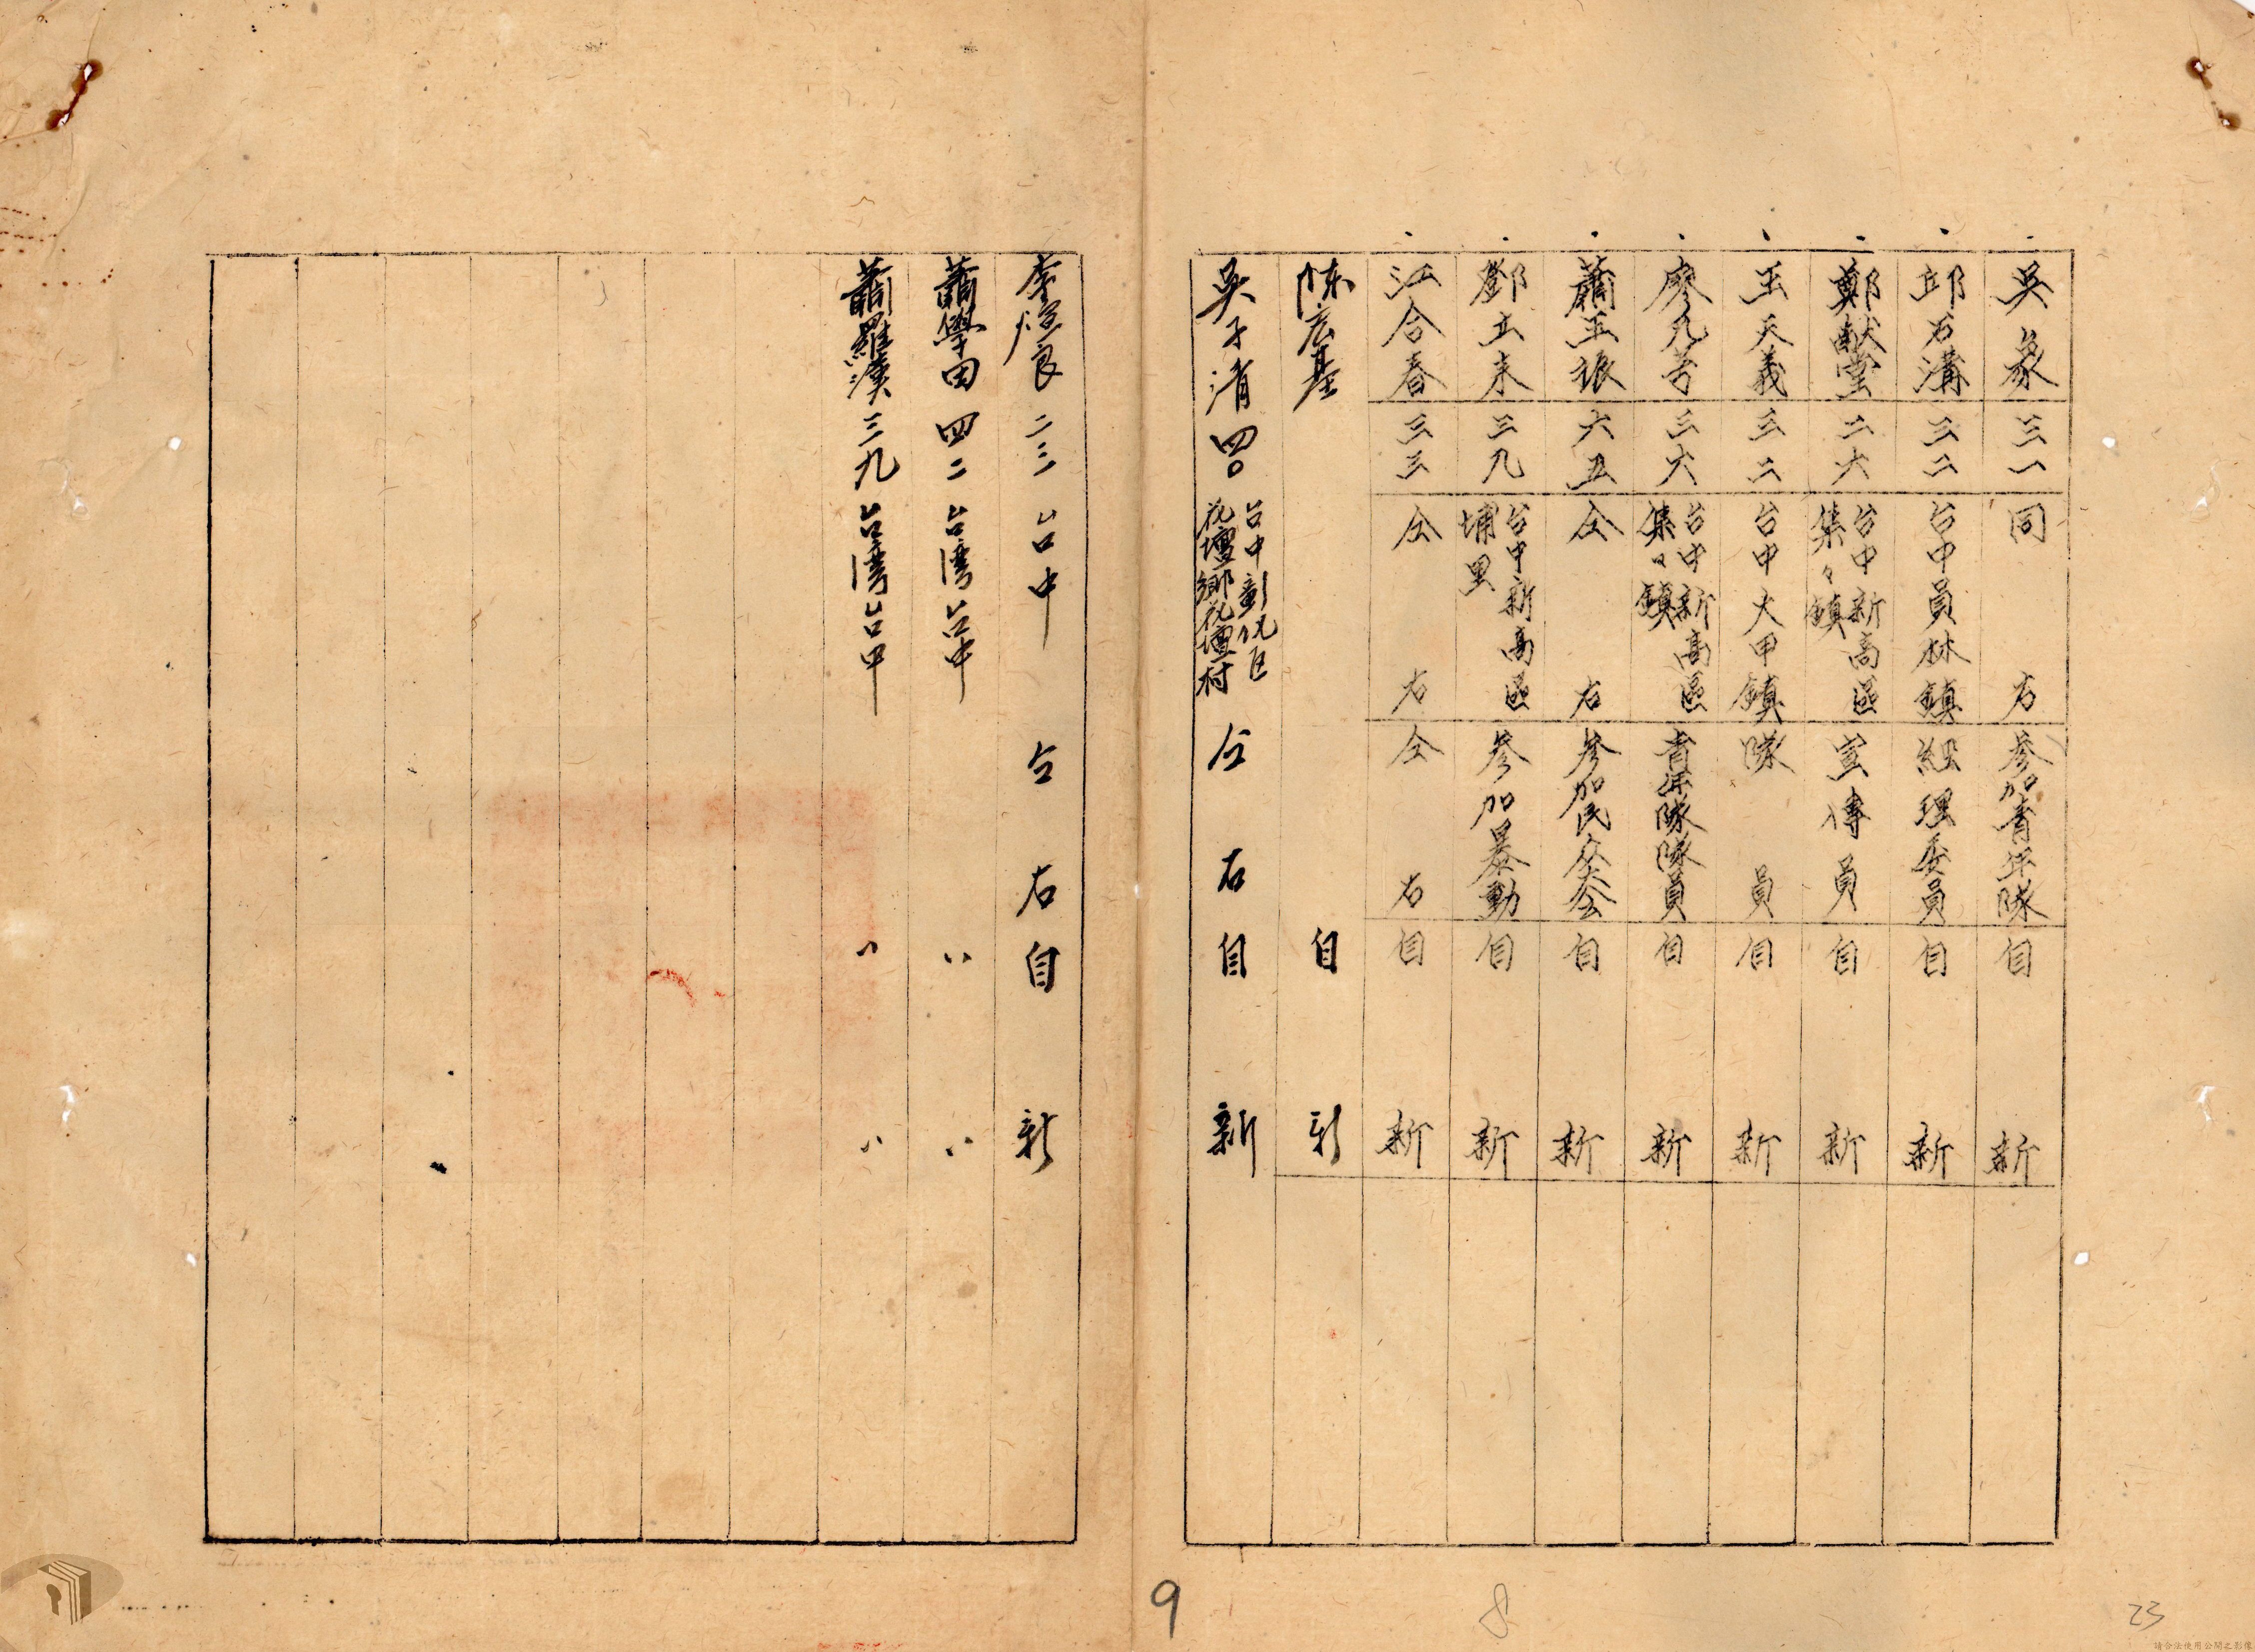 吳象 三一 同右 參加青年隊 自新
邱石溝 三二 台中員林鎮 經理委員 自新
鄭献堂 二六 台中新高區集々鎮 宣傳員 自新
王天義 三二 台中大甲鎮 隊員 自新
廖九芎 三六 台中新高區集々鎮 青年隊隊員 自新
蕭玉振 六五 仝右 參加民众大会 自新
鄧立來 三九 台中新高區埔里 參加暴動 自新
江合春 三三 仝右 仝右 自新
陈宏基 自新
吳子清 四〇 台中彰化区花壇鄉花壇村 仝右 自新
李燈良 二三 台中 仝右 自新
蕭學田 四二 台湾台中 〃 〃
蕭羅漢 三九 台湾台中 〃 〃
9
8
23
請合法使用公開之影像